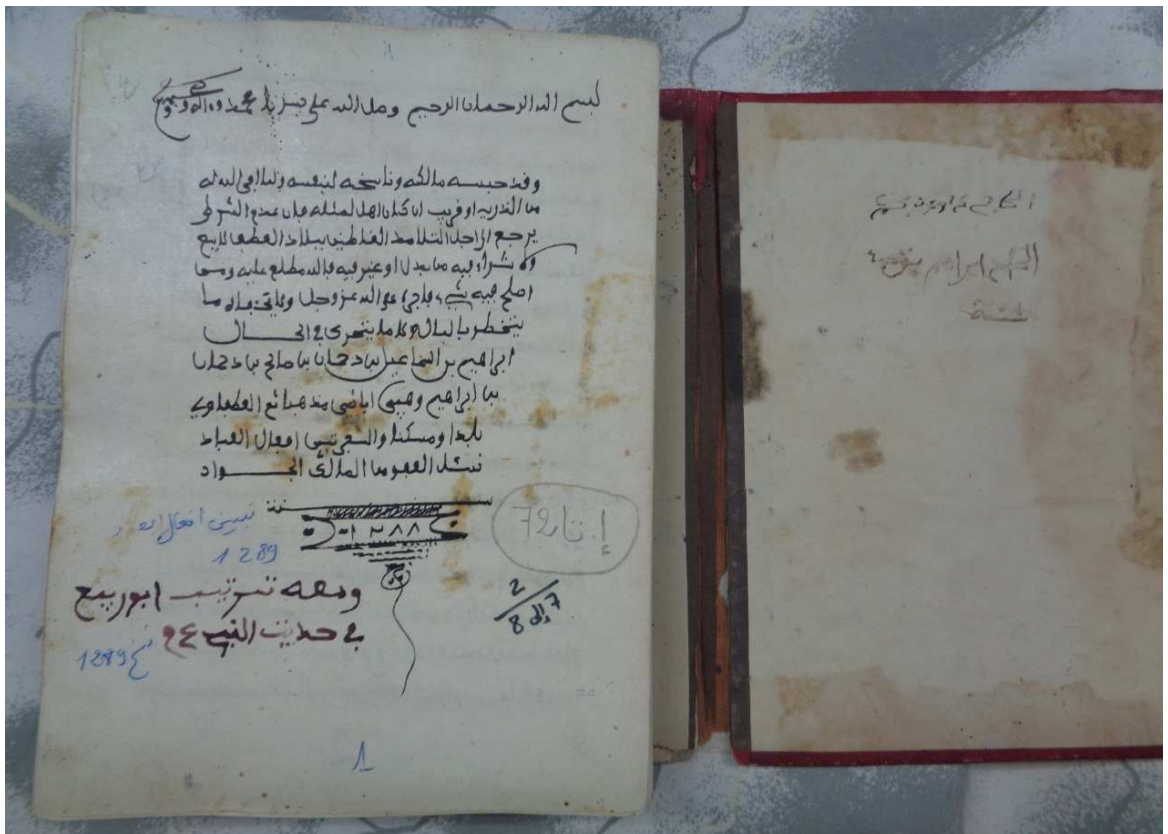 بسم الله الرحمان الرحيم وصلى الله على سيدنا محمد وءاله
وقد حبسه مالكه وناسخه لنفسه ولما في اليد له
من الذرية او قريب ان كان اهل لمثله فان عدم الشرط
يرجع الى اجل التلامذ القاطنين ببلاد القطف للابيع
ولا شراء فيه من بدل او غير فيه فالله مطلع عليه ومن
اصلح فيه شيء فاجره على الله عز وجل
يتخطر بالبال ولا ما يتحرى في الحال
ابراهيم بن اسماعيل بن دحمان بن صالح بن دحمان
بن ابراهيم وهبي اباضي مذهبا
بلدا ومسكنا والسعر تبيين افعال العباد
نسئل العفو من المالك الجواد
سنة
١٢٨٨
تبيين افعال
1289
إ. تا 72
2
8 دال 7
ومعه ترتيب ابو ربيع
في حديث النبي
نسخ 1289
1
الحاج
الحاج ابراهيم بن